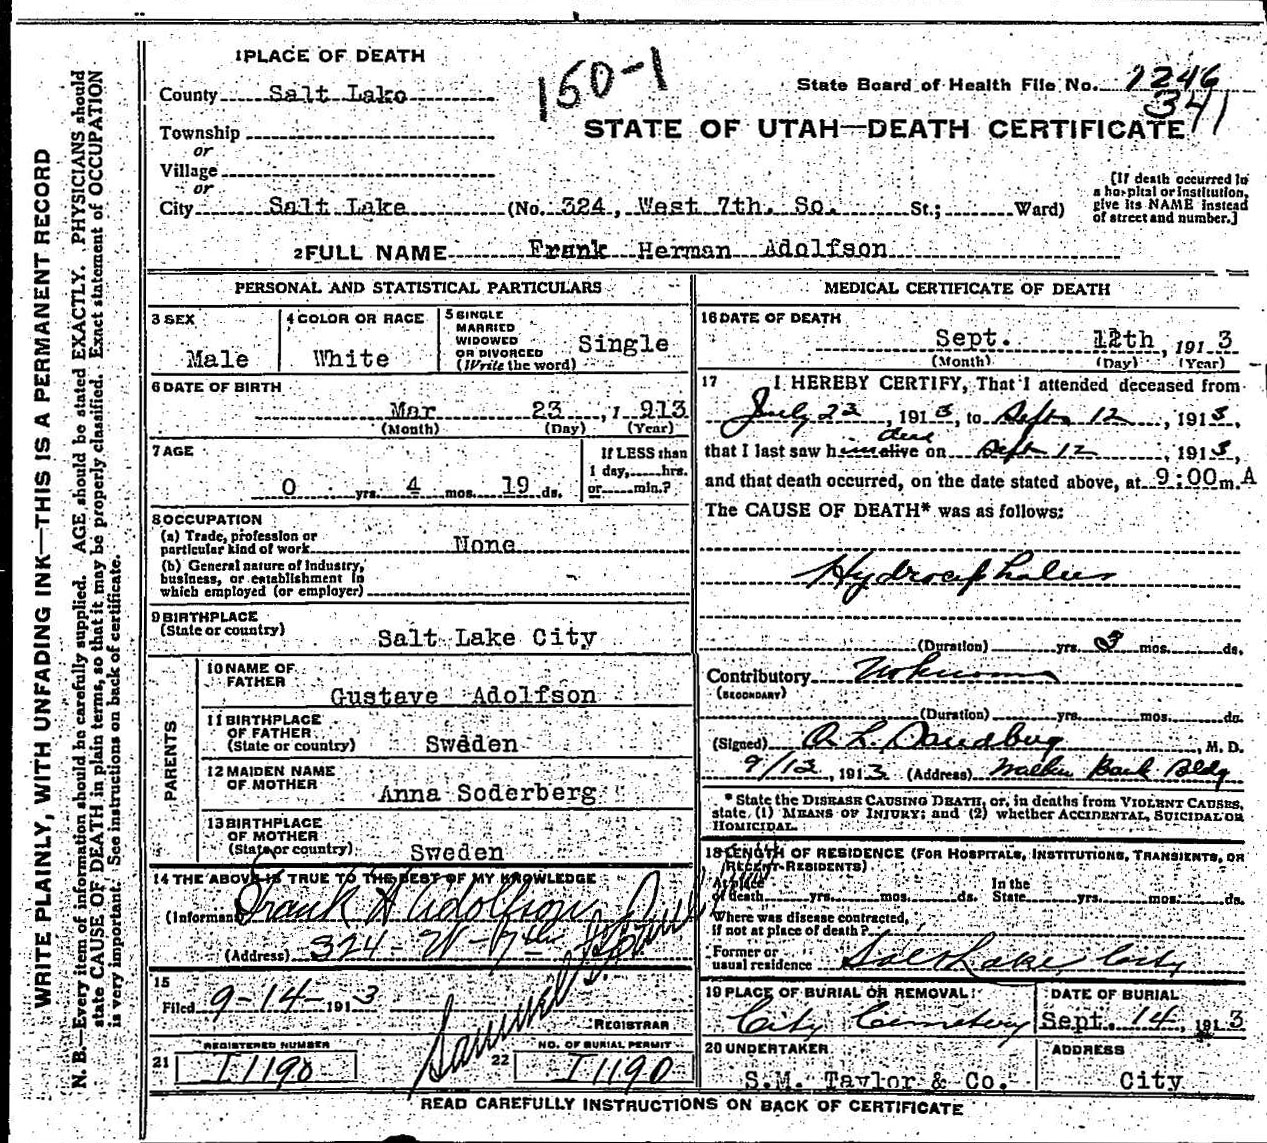 1 PLACE OF DEATH
150-1
State Board of Health File No. 1246
341
County Salt Lake
STATE OF UTAH—DEATH CERTIFICATE
Township
or
Village
or
[If death occurred in a hospital or institution, give its NAME instead of street and number.]
City Salt Lake (No. 324, West 7th. So. St.; Ward)
2 FULL NAME Frank Herman Adolfson
PERSONAL AND STATISTICAL PARTICULARS
3 SEX Male
4 COLOR OR RACE White
5 SINGLE MARRIED WIDOWED OR DIVORCED (Write the word) Single
6 DATE OF BIRTH
Mar 23, 1 913
(Month) (Day) (Year)
7 AGE
If LESS than
1 day, hrs.
0 yrs. 4 mos. 19 ds. or min.?
8 OCCUPATION
(a) Trade, profession or
particular kind of work None
(b) General nature of Industry,
business, or establishment in
which employed (or employer)
9 BIRTHPLACE
(State or country) Salt Lake City
PARENTS
10 NAME OF
FATHER Gustave Adolfson
11 BIRTHPLACE
OF FATHER
(State or country) Sweden
12 MAIDEN NAME
OF MOTHER Anna Soderberg
13 BIRTHPLACE
OF MOTHER
(State or country) Sweden
14 THE ABOVE IS TRUE TO THE BEST OF MY KNOWLEDGE
(Informant) Frank H Adolfson
(Address) 324-W-7th So
15
Filed 9-14- 1913
REGISTRAR
REGISTERED NUMBER
21 I1190
NO. OF BURIAL PERMIT
22 I1190
MEDICAL CERTIFICATE OF DEATH
16 DATE OF DEATH
Sept. 12th, 191 3
(Month) (Day) (Year)
17 I HEREBY CERTIFY, That I attended deceased from
July 23, 1913, to Sept 12, 1913,
dead
that I last saw him alive on Sept 12, 1913,
and that death occurred, on the date stated above, at 9:00m. A
The CAUSE OF DEATH* was as follows:
Hydrocephalus
(Duration) yrs. 3 mos. ds.
Contributory Unknown
(SECONDARY)
(Duration) yrs. mos. ds.
(Signed) M. D.
9/13, 1913 (Address) Walker Bank Bldg
* State the DISEASE CAUSING DEATH, or, in deaths from VIOLENT CAUSES,
state (1) MEANS OF INJURY; and (2) whether ACCIDENTAL, SUICIDAL OR
HOMICIDAL.
18 LENGTH OF RESIDENCE (FOR HOSPITALS, INSTITUTIONS, TRANSIENTS, OR
RECENT RESIDENTS)
At place
of death yrs. mos. ds. In the State yrs. mos. ds.
Where was disease contracted,
if not at place of death?
Former or
usual residence Salt Lake City
19 PLACE OF BURIAL OR REMOVAL
City Cemetery
DATE OF BURIAL
Sept. 14, 191 3
20 UNDERTAKER
S.M. Taylor & Co.
ADDRESS
City
READ CAREFULLY INSTRUCTIONS ON BACK OF CERTIFICATE
WRITE PLAINLY, WITH UNFADING INK—THIS IS A PERMANENT RECORD
N. B.—Every item of information should be carefully supplied. AGE should be stated EXACTLY. PHYSICIANS should
state CAUSE OF DEATH in plain terms, so that it may be properly classified. Exact statement of OCCUPATION
is very important. See instructions on back of certificate.